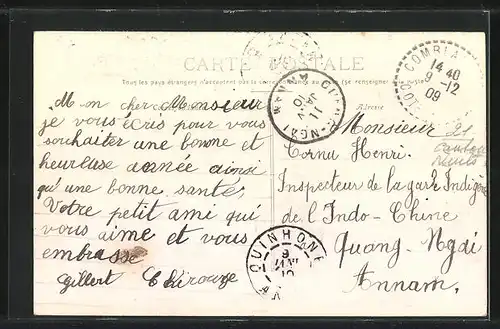 CARTE POSTALE
Tous les pays étrangers n'acceptent pas la correspondance au recto (se renseigner
Mon cher Monsieur
je vous écris pour vous
souhaiter une bonne et
heureuse année ainsi
qu'une bonne santé,
Votre petit ami qui
vous aime et vous
embrasse
Gilbert
Adresse
Monsieur
Cornu Henri.
Inspecteur de la garde Indigène
de l'Indo-Chine
Quang-Ngai
Annam.
14-40
9-12
09
11
QUINHONE
6